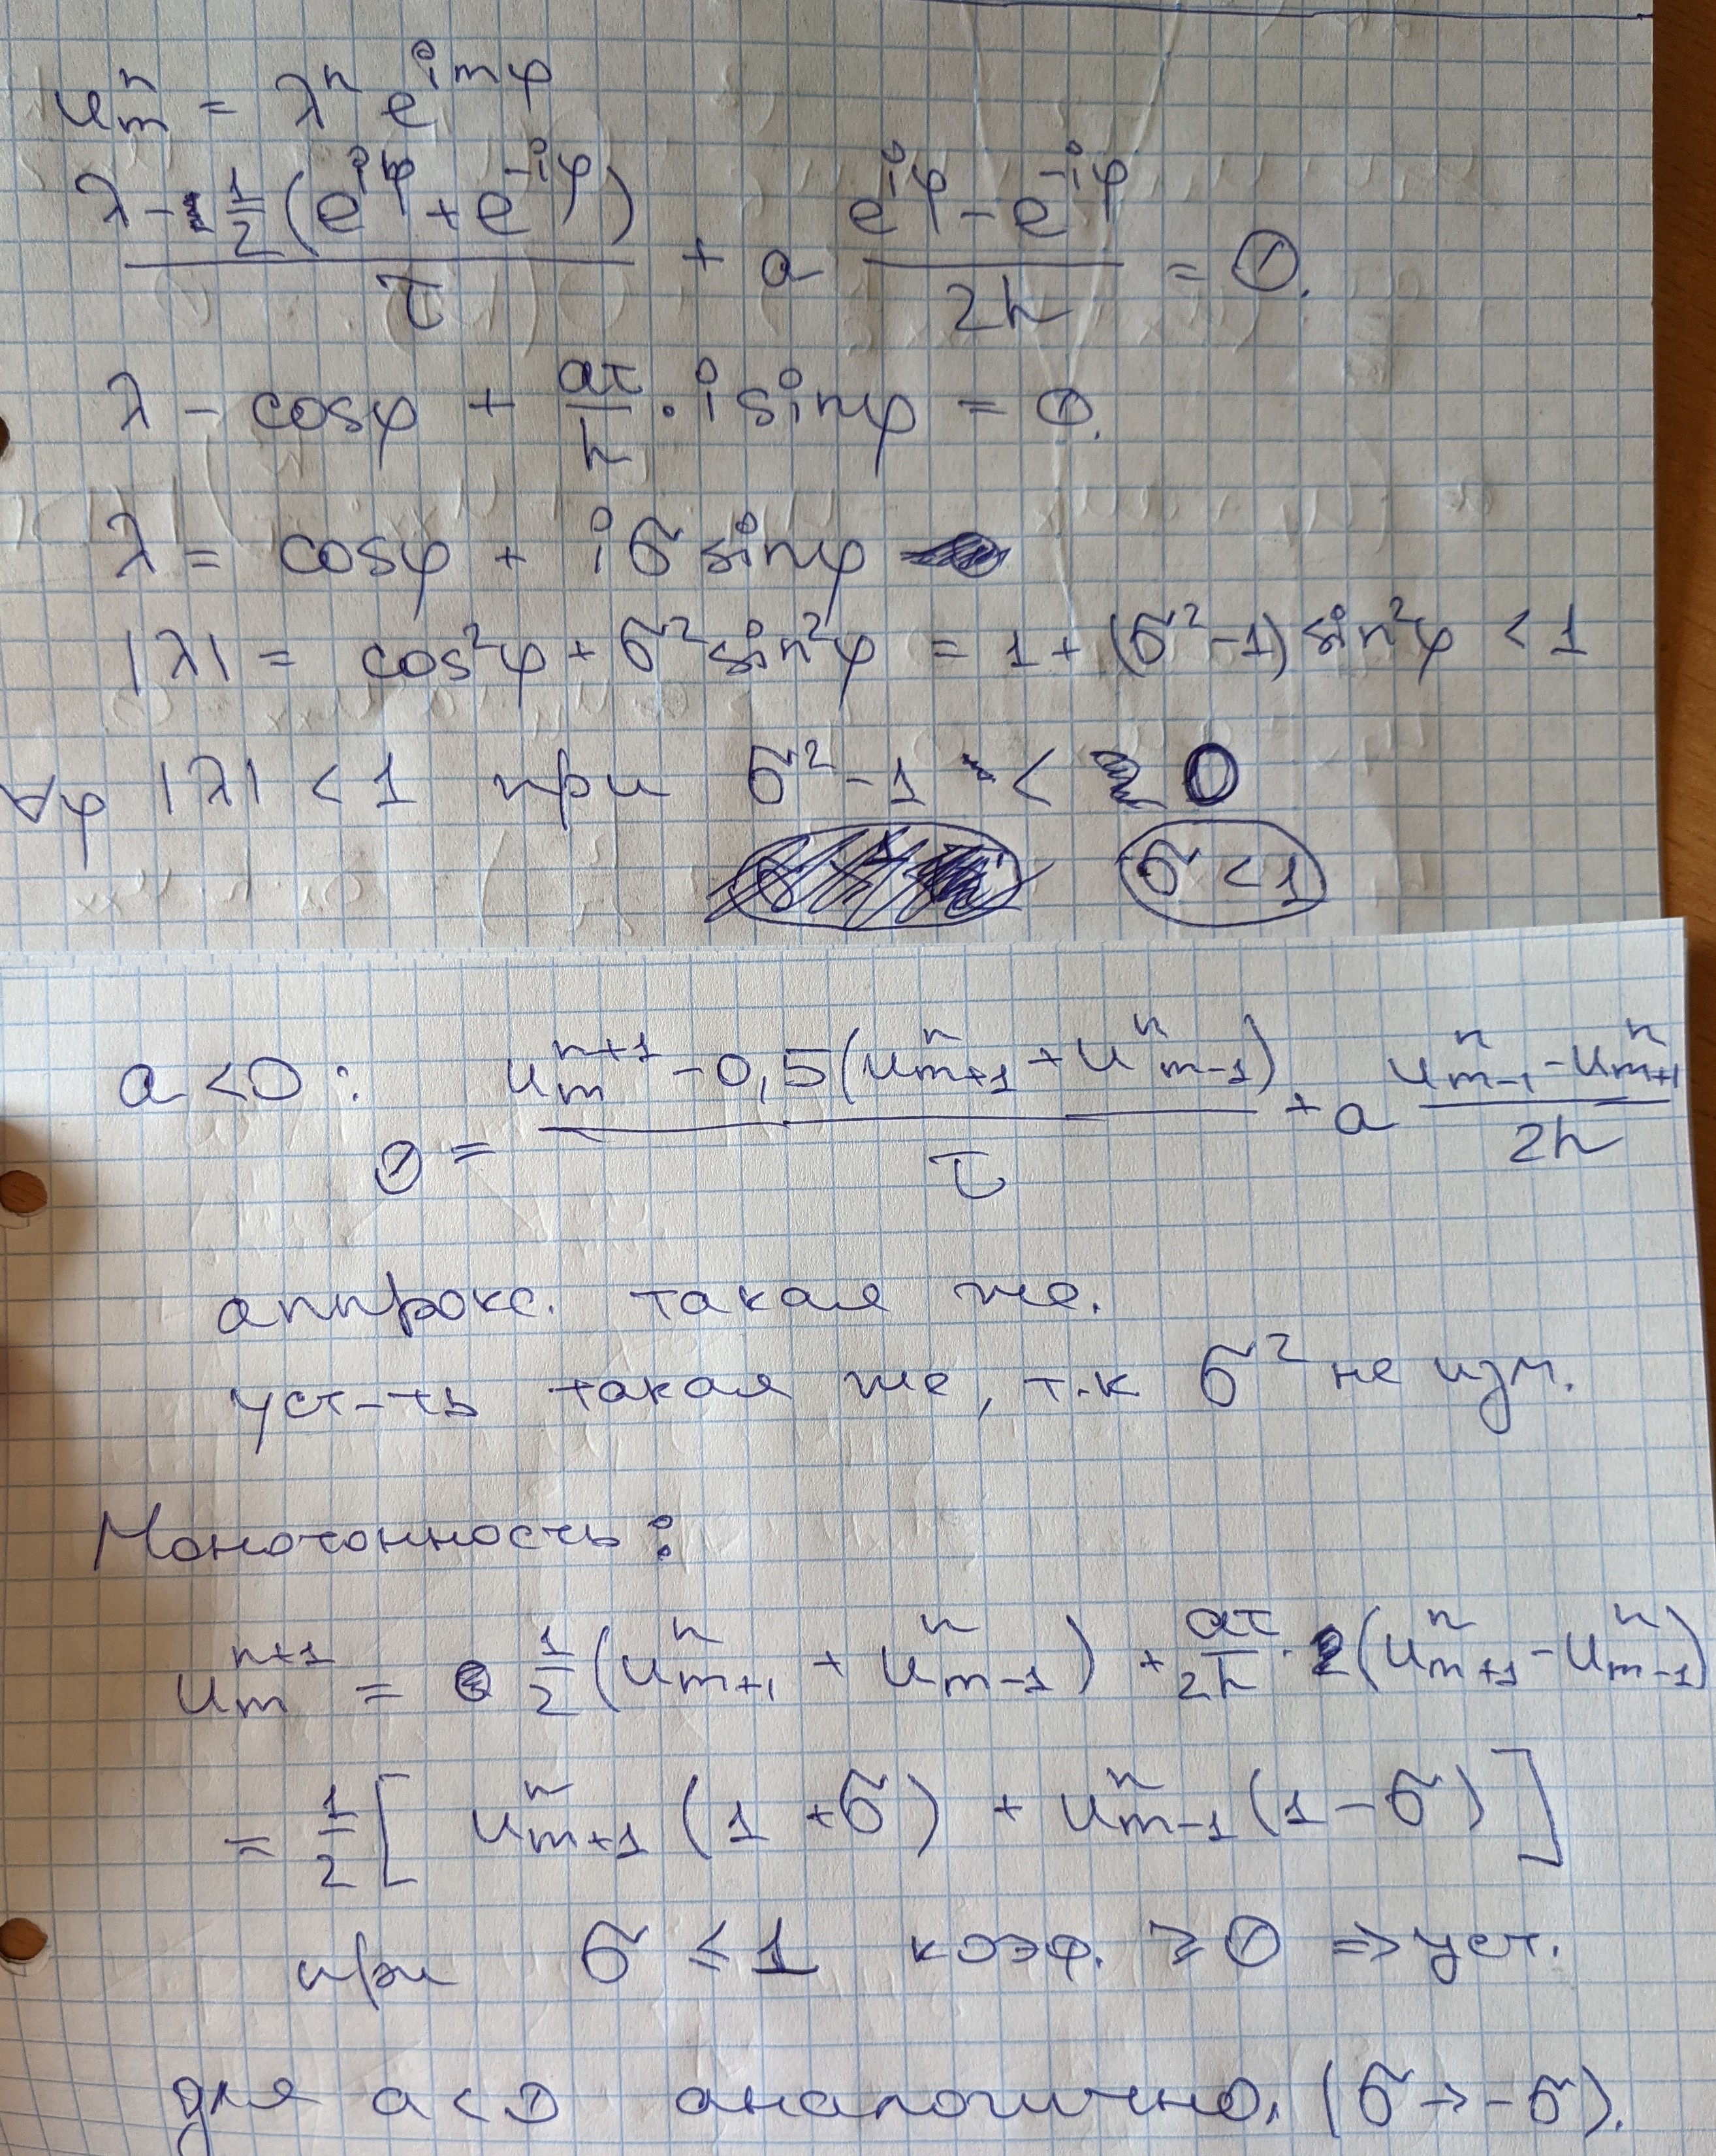 u_m^n = λ^n e^{imφ}
(λ - 1/2 (e^{iφ} + e^{-iφ}))/τ + a (e^{iφ} - e^{-iφ})/2h = 0.
λ - cosφ + aτ/h · i sinφ = 0.
λ = cosφ + iσ sinφ
|λ| = cos²φ + σ² sin²φ = 1 + (σ² - 1) sin²φ < 1
∀φ |λ| < 1 при σ² - 1 < 0
σ < 1
a < 0: 0 = (u_m^{n+1} - 0,5(u_{m+1}^n + u_{m-1}^n))/τ + a (u_{m-1}^n - u_{m+1}^n)/2h
аппрокс. такая же.
уст-ть такая же, т.к σ² не изм.
Монотонность:
u_m^{n+1} = 1/2 (u_{m+1}^n + u_{m-1}^n) + aτ/2h · (u_{m+1}^n - u_{m-1}^n)
= 1/2 [ u_{m+1}^n (1 + σ) + u_{m-1}^n (1 - σ) ]
при σ ≤ 1 коэф. ≥ 0 => уст.
для a < 0 аналогично. (σ → -σ).